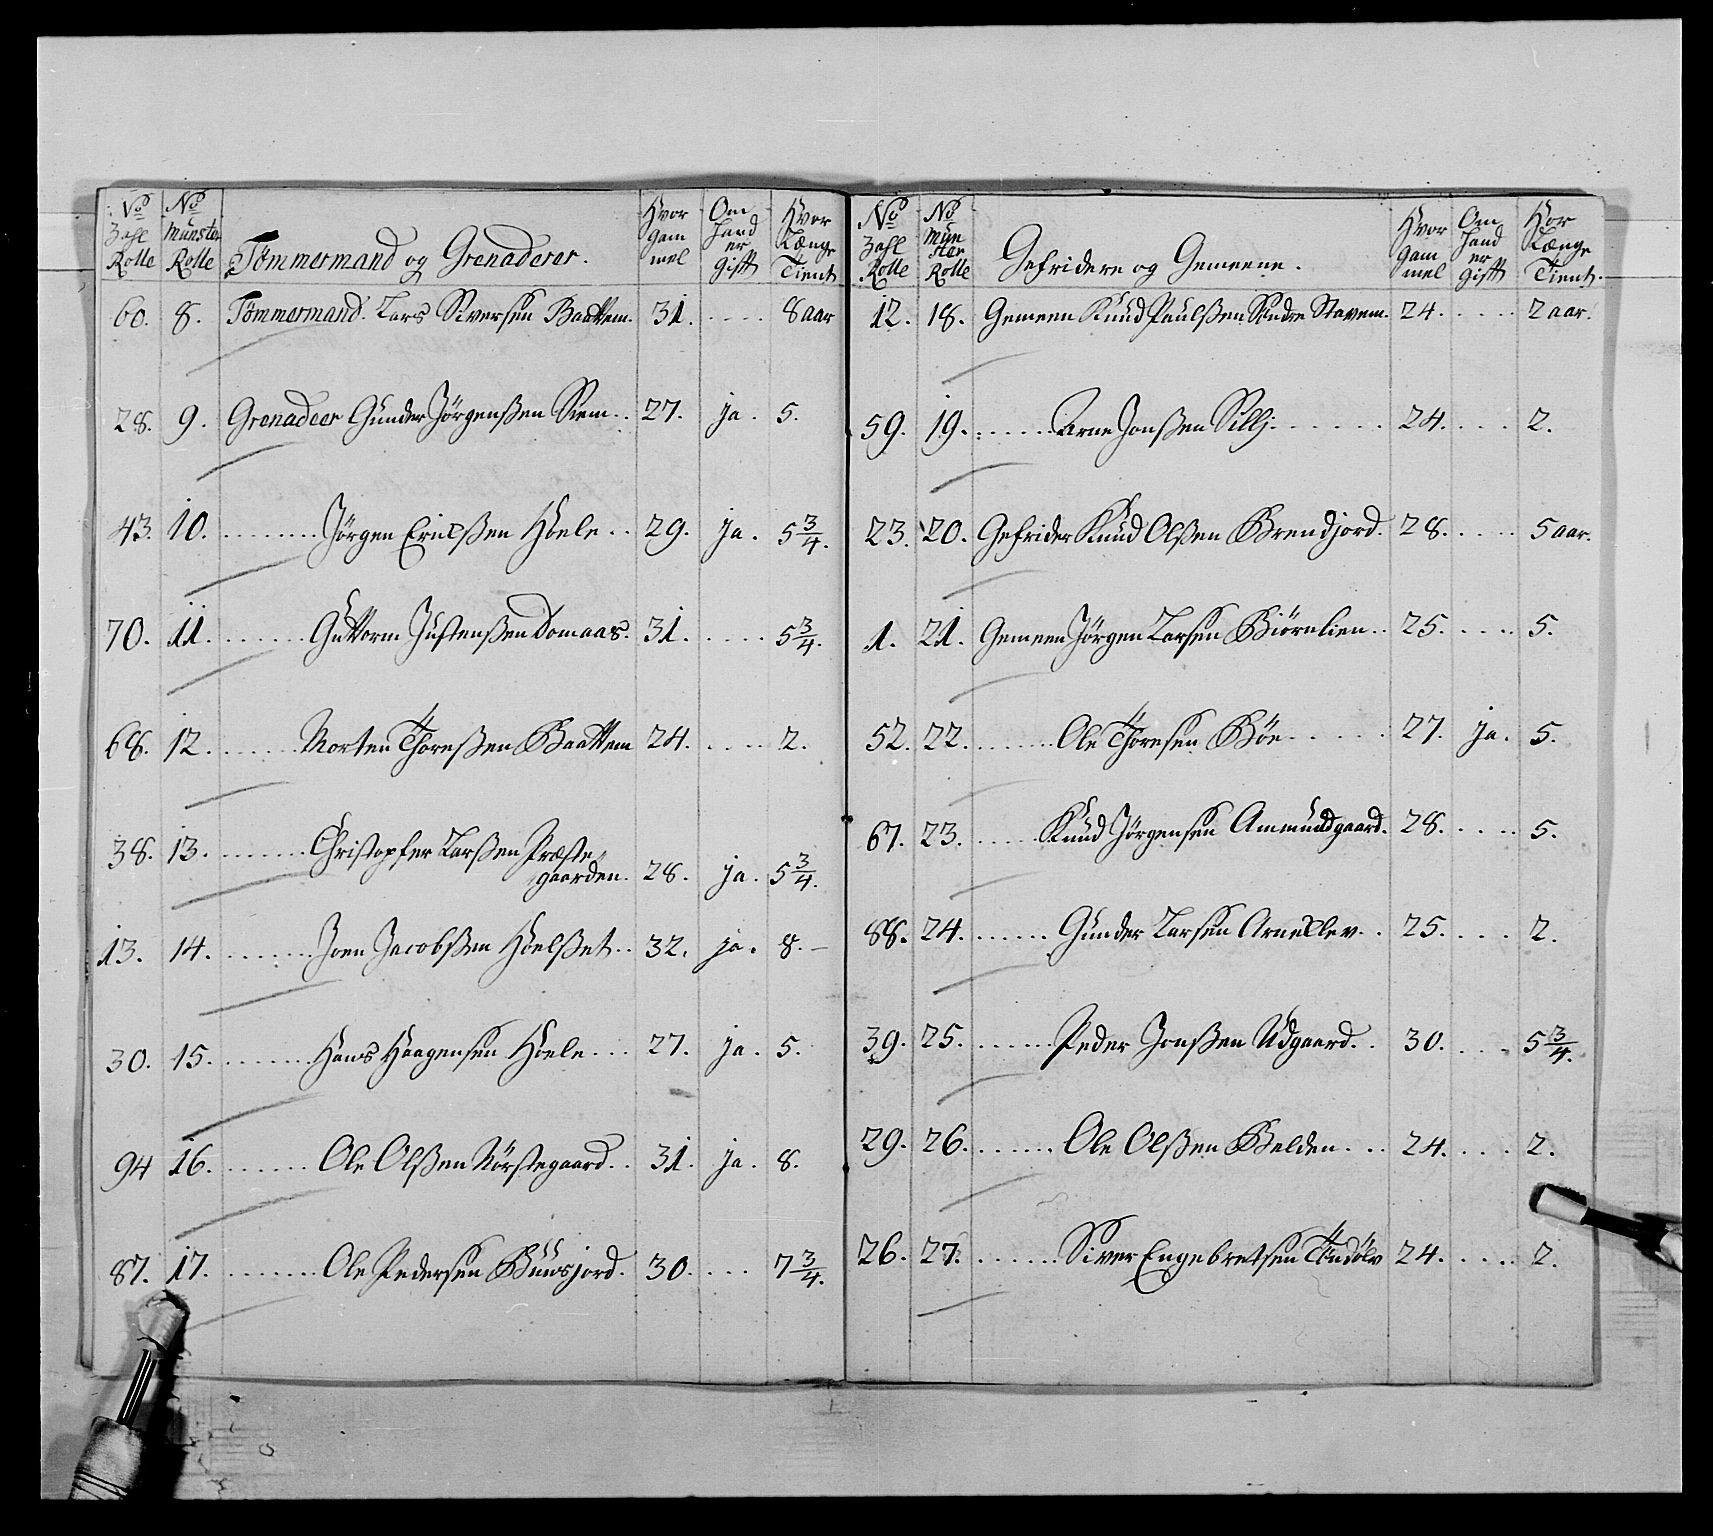 No Zahl Rolle No Munster Rolle Tømmermand og Grenaderer. Hvor gam mel Om hand er gifft Hvor Længe Tient
60. 8. Tømmermand. Lars Siversen Baattem. 31. .... 8 aar
28. 9. Grenadeer Gunder Jørgenßen Siem.. 27. ja. 5.
43. 10. ........ Jørgen Erichßen Hoele.. 29. ja. 5 3/4.
70. 11. ....... Guttorm Justenßen Domaas. 31. .... 5 3/4.
68. 12. ....... Morten Thorenßen Baattem 24. .... 2.
38. 13. ....... Christopher Larßen Præste-
gaarden. 28. ja. 5 3/4.
13. 14. ....... Joen Jacobßen Hoelßet.. 32. ja. 8. –
30. 15. ....... Hans Haagensen Hoele... 27. ja. 5.
94 16. ....... Ole Olßen Nørstegaard.. 31. ja. 8.
87. 17. ....... Ole Pedersen Buusjord. 30. ... 7 3/4.
No Zahl Rolle No Mun ster Rolle Gefridere og Gemeene. Hvor gam mel Om hand er gifft Hor Længe Tient.
12. 18. Gemeen Knud Paulßen Søndre Stavem. 24. .... 2 aar.
59. 19. ....... Arne Jonßen Sillj....... 24. .... 2.
23. 20. Gefrider Knud Olßen Brendjord. 28. .... 5 aar.
1. 21. Gemeen Jørgen Larsen Biørnlien.. 25. .... 5.
52. 22. ....... Ole Thoresen Bøe...... 27. ja. 5.
67. 23. ..... Knud Jørgensen Amundgaard. 28. .... 5.
88. 24. ...... Gunder Larsen Arnellev.. 25. .... 2.
39. 25. ...... Peder Jonßen Udgaard.. 30. .... 5 3/4.
29. 26. ...... Ole Olßen Belden... 24. .... 2.
26. 27. ....... Siver Engebretsen Tondølv 24. .... 2.